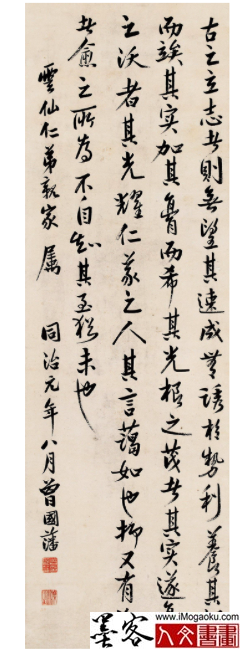 古之立志者則無望其速成無誘於勢利養其
而竢其实加其膏而希其光根之茂者其实遂
之沃者其光耀仁義之人其言藹如也抑又有
者愈之所為不自知其至猶未也
雲仙仁弟親家 屬 同治元年八月曾國藩
www.iMogaoku.com
墨客人文書畫